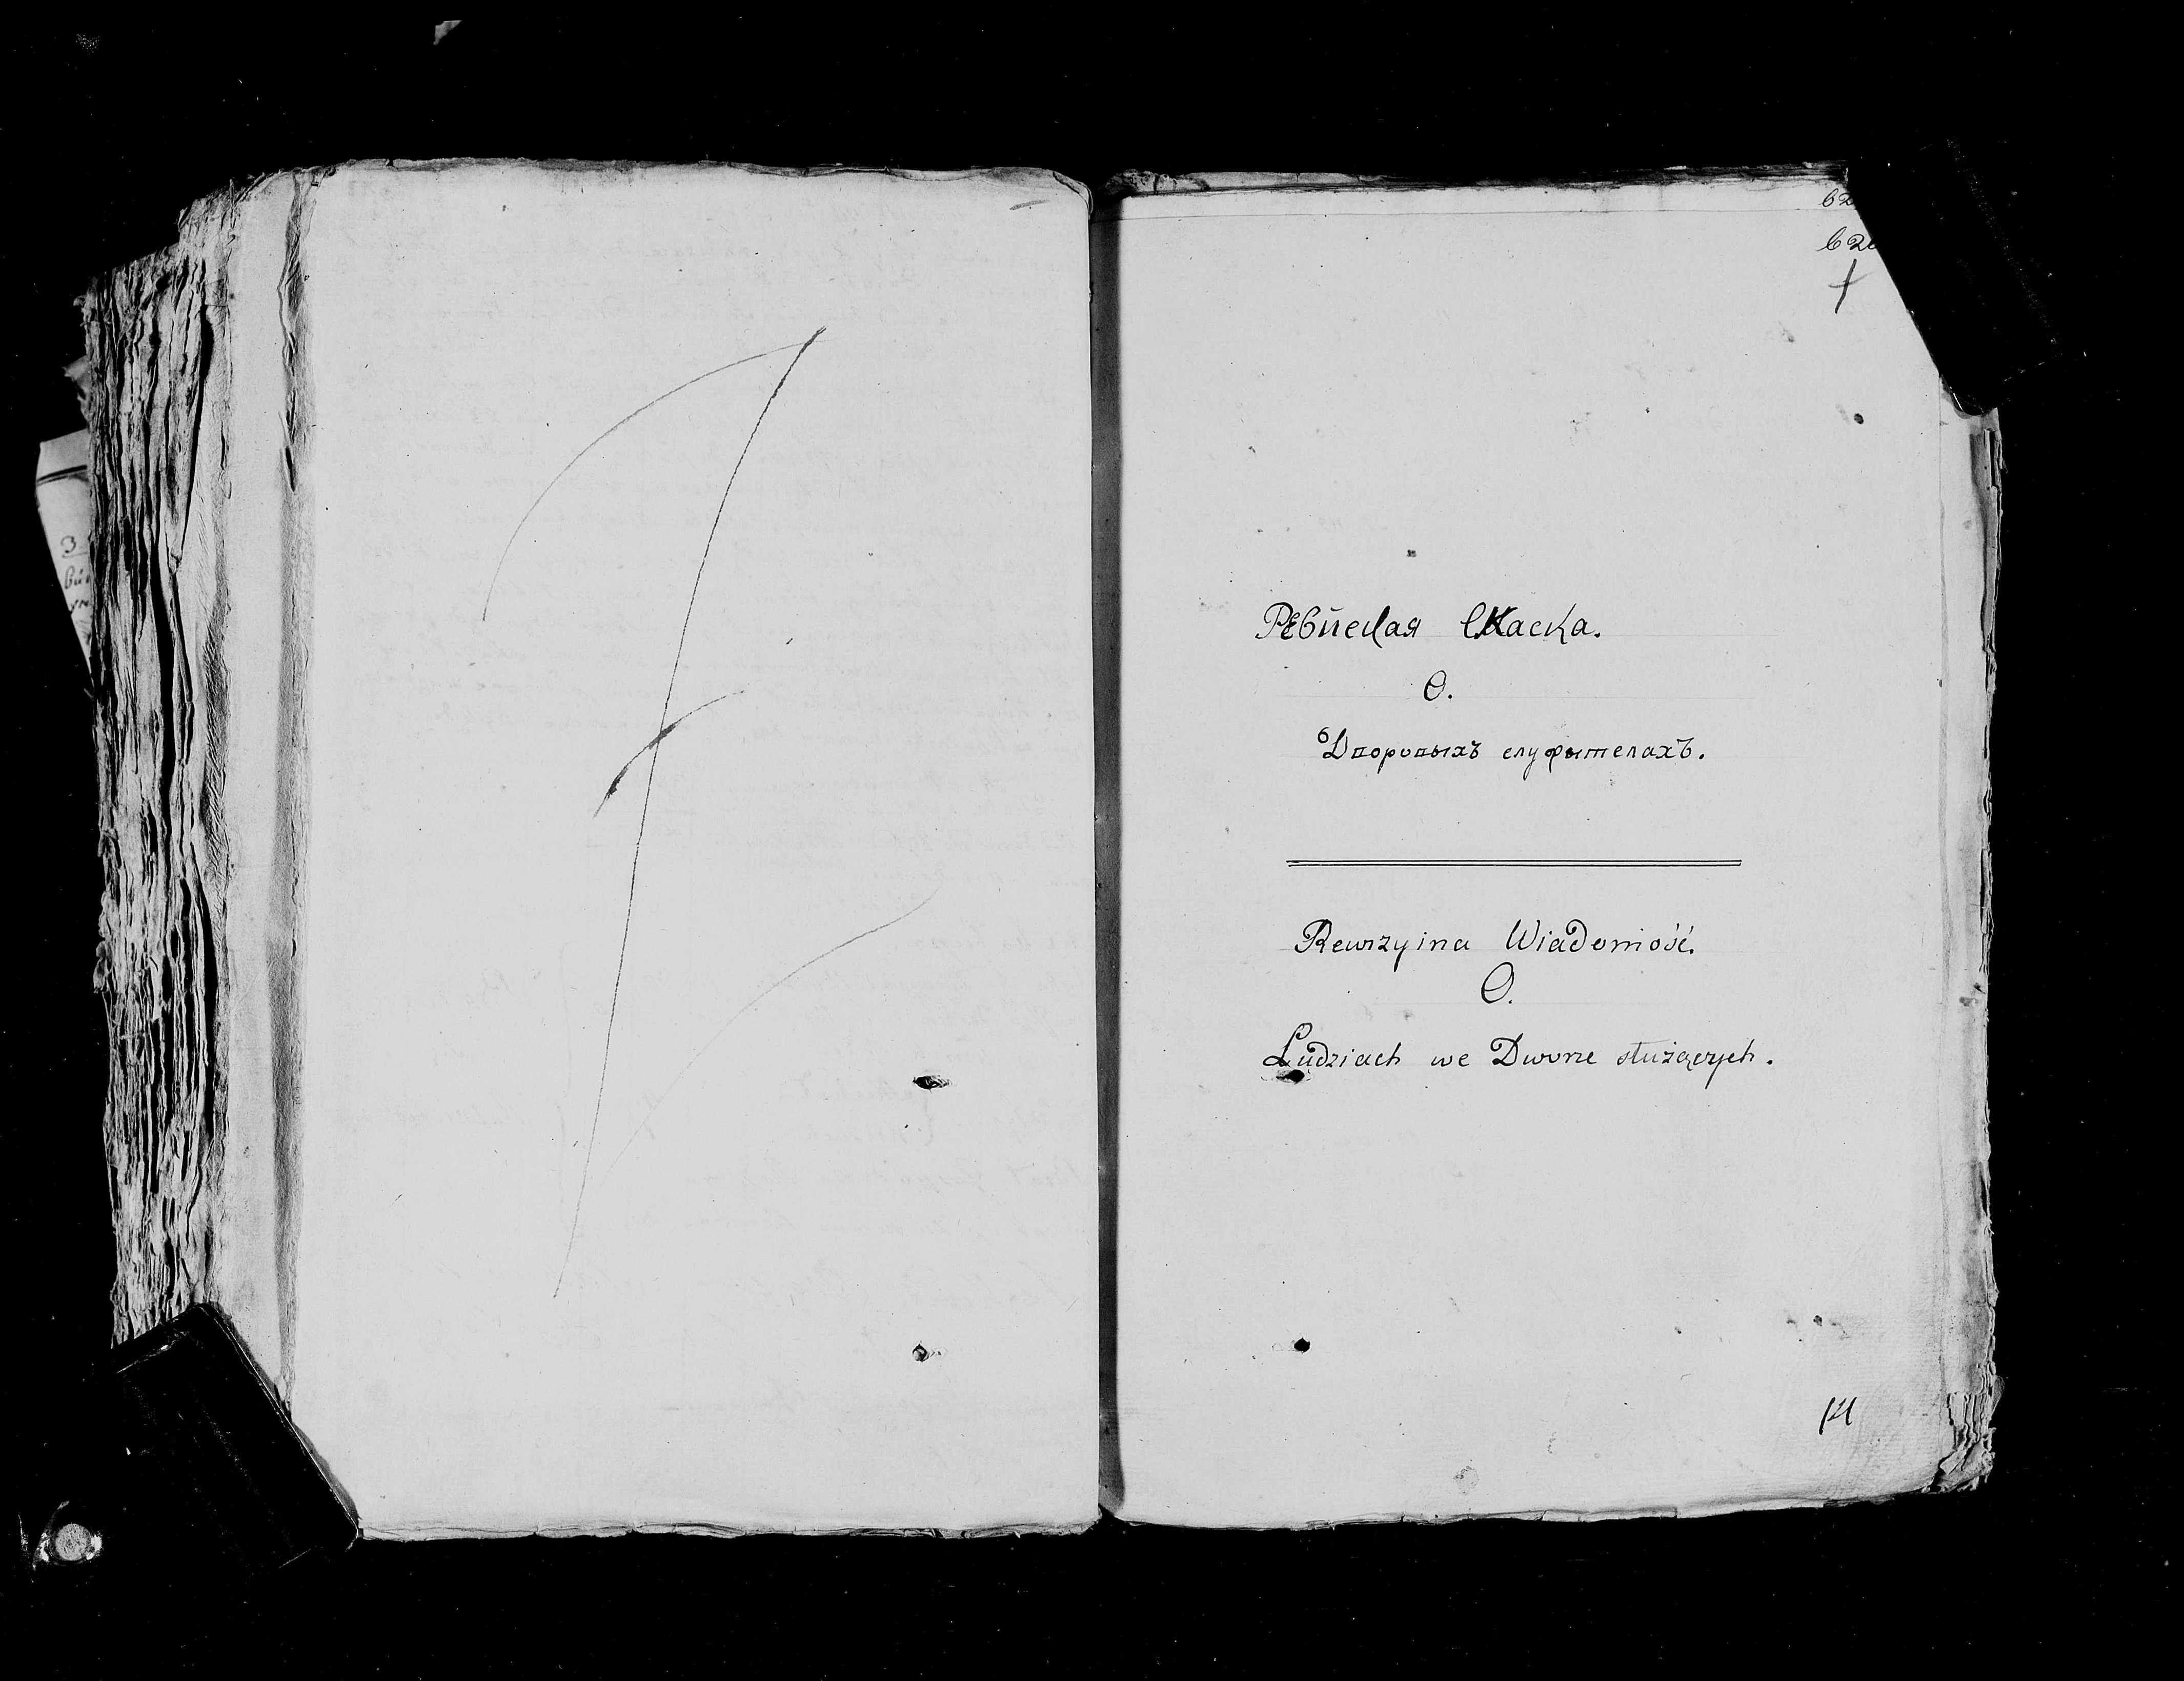 Ревиская Скаска.
О.
Дворовыхъ служытелахъ.
Rewizyina Wiadomość.
O.
Ludziach we Dworze służących.